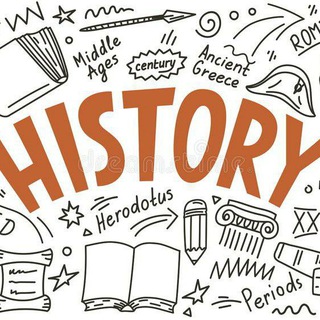 Middle
Ages
century
Ancient
Greece
ROM
HISTORY
dreamstime
Herodotus
XX
Periods